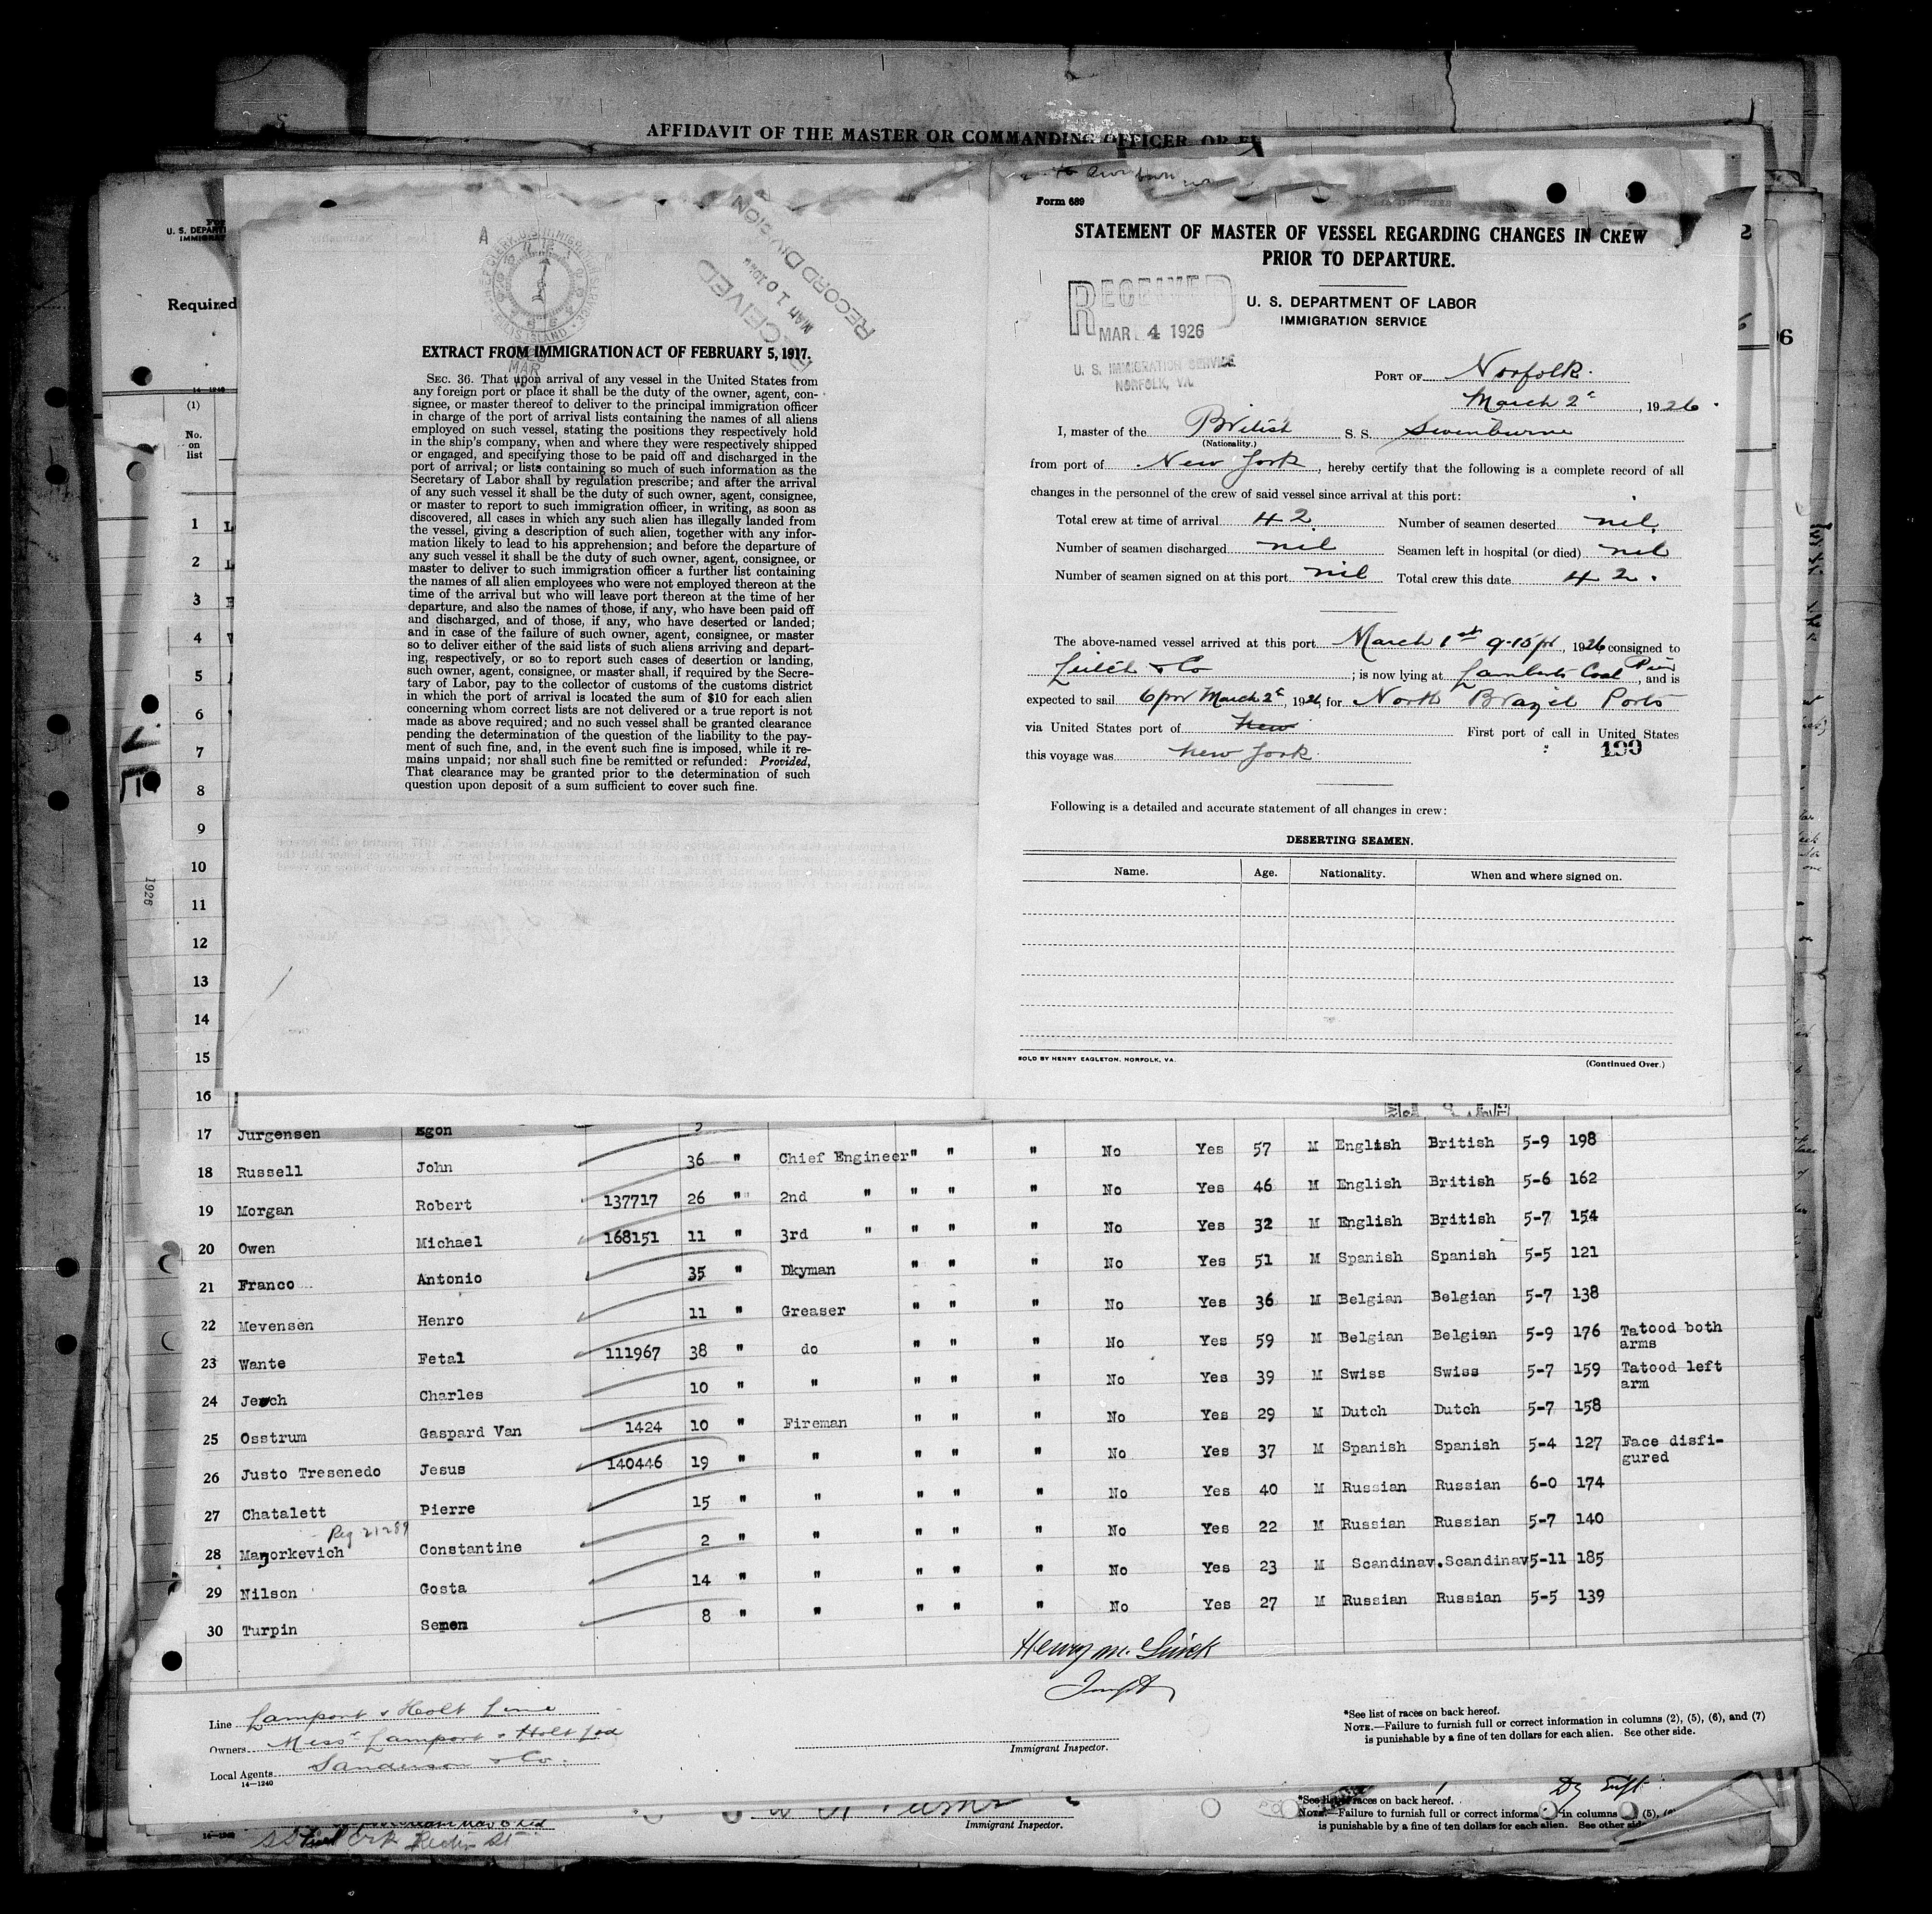 AFFIDAVIT OF THE MASTER OR COMMANDING OFFICER, OR
U. S. DEPARTI
IMMIGRAT
Required
14—1240
(1)
No.
on
list
1
2
3
4
5
6
7
8
9
10
11
12
13
14
15
16
1926
RECEIVED
MAR 10 1926
RECORD DIVISION
EXTRACT FROM IMMIGRATION ACT OF FEBRUARY 5, 1917.
SEC. 36. That upon arrival of any vessel in the United States from
any foreign port or place it shall be the duty of the owner, agent, con-
signee, or master thereof to deliver to the principal immigration officer
in charge of the port of arrival lists containing the names of all aliens
employed on such vessel, stating the positions they respectively hold
in the ship's company, when and where they were respectively shipped
or engaged, and specifying those to be paid off and discharged in the
port of arrival; or lists containing so much of such information as the
Secretary of Labor shall by regulation prescribe; and after the arrival
of any such vessel it shall be the duty of such owner, agent, consignee,
or master to report to such immigration officer, in writing, as soon as
discovered, all cases in which any such alien has illegally landed from
the vessel, giving a description of such alien, together with any infor-
mation likely to lead to his apprehension; and before the departure of
any such vessel it shall be the duty of such owner, agent, consignee, or
master to deliver to such immigration officer a further list containing
the names of all alien employees who were not employed thereon at the
time of the arrival but who will leave port thereon at the time of her
departure, and also the names of those, if any, who have been paid off
and discharged, and of those, if any, who have deserted or landed;
and in case of the failure of such owner, agent, consignee, or master
so to deliver either of the said lists of such aliens arriving and depart-
ing, respectively, or so to report such cases of desertion or landing,
such owner, agent, consignee, or master shall, if required by the Secre-
tary of Labor, pay to the collector of customs of the customs district
in which the port of arrival is located the sum of $10 for each alien
concerning whom correct lists are not delivered or a true report is not
made as above required; and no such vessel shall be granted clearance
pending the determination of the question of the liability to the pay-
ment of such fine, and, in the event such fine is imposed, while it re-
mains unpaid; nor shall such fine be remitted or refunded: Provided,
That clearance may be granted prior to the determination of such
question upon deposit of a sum sufficient to cover such fine.
Form 689
STATEMENT OF MASTER OF VESSEL REGARDING CHANGES IN CREW
PRIOR TO DEPARTURE.
U. S. DEPARTMENT OF LABOR
IMMIGRATION SERVICE
RECEIVED
MAR 4 1926
U. S. IMMIGRATION SERVICE
NORFOLK, VA.
PORT OF Norfolk.
March 2d, 1926.
I, master of the British S. S. Swinburne
(Nationality.)
from port of New York, hereby certify that the following is a complete record of all
changes in the personnel of the crew of said vessel since arrival at this port:
Total crew at time of arrival 42 Number of seamen deserted nil.
Number of seamen discharged nil Seamen left in hospital (or died) nil
Number of seamen signed on at this port nil Total crew this date 42.
The above-named vessel arrived at this port March 1st 9-15 pm, 1926 consigned to
& Co; is now lying at Lamberts Coal Pier, and is
expected to sail 6 pm March 2d, 1926, for North Brazil Ports
via United States port of New First port of call in United States
this voyage was New York. 199
Following is a detailed and accurate statement of all changes in crew:
DESERTING SEAMEN.
Name. Age. Nationality. When and where signed on.
SOLD BY HENRY EAGLETON, NORFOLK, VA. (Continued Over.)
17 Jurgensen Egon 2
18 Russell John 36 " Chief Engineer " " " No Yes 57 M English British 5-9 198
19 Morgan Robert 137717 26 " 2nd " " " " No Yes 46 M English British 5-6 162
20 Owen Michael 168151 11 " 3rd " " " " No Yes 32 M English British 5-7 154
21 Franco Antonio 35 " Dkyman " " " No Yes 51 M Spanish Spanish 5-5 121
22 Mevensen Henro 11 " Greaser " " " No Yes 36 M Belgian Belgian 5-7 138
23 Wante Fetal 111967 38 " do " " " No Yes 59 M Belgian Belgian 5-9 176 Tatood both
arms
24 Charles 10 " " " " " No Yes 39 M Swiss Swiss 5-7 159 Tatood left
arm
25 Osstrum Gaspard Van 1424 10 " Fireman " " " No Yes 29 M Dutch Dutch 5-7 158
26 Justo Tresenedo Jesus 140446 19 " " " " " No Yes 37 M Spanish Spanish 5-4 127 Face disfi-
gured
27 Chatalett Pierre 15 " " " " " No Yes 40 M Russian Russian 6-0 174
Reg 21289
28 Majorkevich Constantine 2 " " " " " No Yes 22 M Russian Russian 5-7 140
29 Nilson Gosta 14 " " " " " No Yes 23 M Scandinav. Scandinav 5-11 185
30 Turpin Semen 8 " " " " " No Yes 27 M Russian Russian 5-5 139
Line Lamport & Holt Line
Owners Messrs Lamport & Holt Ltd
Local Agents Sanderson & Co.
14—1240
Immigrant Inspector.
*See list of races on back hereof.
NOTE.—Failure to furnish full or correct information in columns (2), (5), (6), and (7)
is punishable by a fine of ten dollars for each alien. See other side.
Immigrant Inspector.
*See list of races on back hereof.
NOTE.—Failure to furnish full or correct informa in columns (5),
is punishable by a fine of ten dollars for each alien. See other side